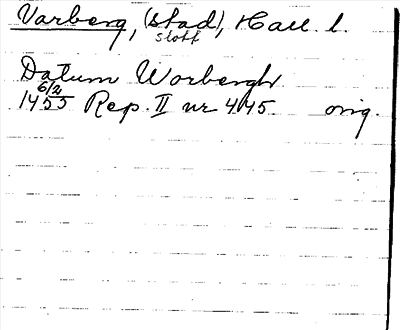 Varberg, (stad), Hall. l.
slott
Datum Worbergh
6/2
1455 Rep. II nr 445 orig.